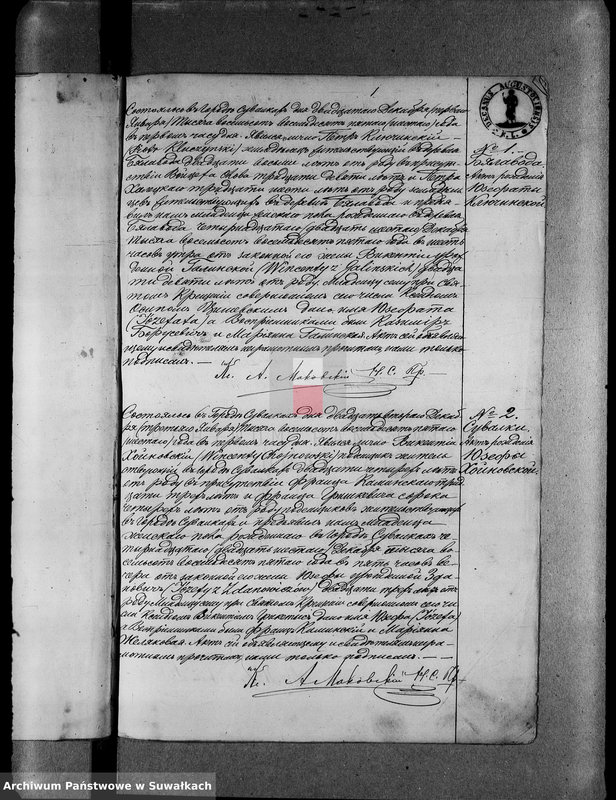 1
Состоялось въ Городѣ Сувалкахъ дня двадцатаго Декабря /перваго
Января/ тысяча восемьсотъ восемьдесятъ пятаго /шестаго/ года
въ первомъ часу дня. Явился лично Петръ Ключинскій
/Piotr Kluczyński/ жительствующій въ деревнѣ
Бялавода двадцати восьми лѣтъ отъ роду въ присут-
ствіи тридцати девяти лѣтъ и Петра
тридцати шести лѣтъ отъ роду
жительствующихъ въ деревнѣ Бялавода и предъ-
явилъ намъ младенца женскаго пола рожденнаго въ деревнѣ
Бялавода четырнадцатаго /двадцать шестаго/ Декабря
тысяча восемьсотъ восемьдесятъ пятаго года въ шесть
часовъ утра отъ законной его жены Викентіи урож-
денной Галинской /Wincenty z Galińskich/ двадца-
ти девяти лѣтъ отъ роду. Младенцу сему при Свя-
томъ Крещеніи совершонномъ сего числа Ксендзомъ
дано имя Юзефата
/Józefata/ а Воспріемниками были Казиміръ
Борусевичъ и Маріянна Галинская. Актъ сей объявляю-
щему и свидѣтелямъ неграмотнымъ прочитанъ, нами только
подписанъ.
А. Маковскій Н. С. Кр.
№ 1.
Бялавода.
Актъ рожденія
Юзефаты
Ключинской
Состоялось въ Городѣ Сувалкахъ дня двадцать втораго Декаб-
ря /третьяго Января/ тысяча восемьсотъ восемьдесятъ пятаго
/шестаго/ года въ первомъ часу дня. Явился лично Викентій
Хойновскій /Wincenty Chojnowski/ жительст
вующій въ Городѣ Сувалкахъ двадцати четырехъ лѣтъ
отъ роду въ присутствіи Франца Калинскаго трид
цати трехъ лѣтъ и Франца сорока
четырехъ лѣтъ отъ роду жительствующихъ
въ Городѣ Сувалкахъ и предъявилъ намъ младенца
женскаго пола рожденнаго въ Городѣ Сувалкахъ че
тырнадцатаго /двадцать шестаго/ Декабря тысяча во
семьсотъ восемьдесятъ пятаго года въ пять часовъ ве
чера отъ законной его жены Юзефы урожденной Зда
новичъ /Józefy z Zdanowiczów/ двадцати трехъ лѣтъ отъ
роду. Младенцу сему при Святомъ Крещеніи совершонномъ сего чи
сла Ксендзомъ дано имя Юзефа /Józefa/
а Воспріемниками были Францъ Калинскій и Маріянна
Желякова. Актъ сей объявляющему и свидѣтелямъ негра
мотнымъ прочитанъ, нами только подписанъ.
А. Маковскій Н. С. Кр.
№ 2.
Сувалки.
Актъ рожденія
Юзефы
Хойновской
Archiwum Państwowe w Suwałkach